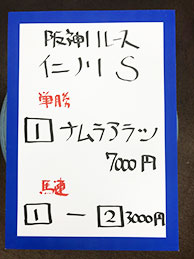 阪神11レース
仁川S
単勝
1 ナムラアラシ
7000円
馬連
1 ー 2 3000円